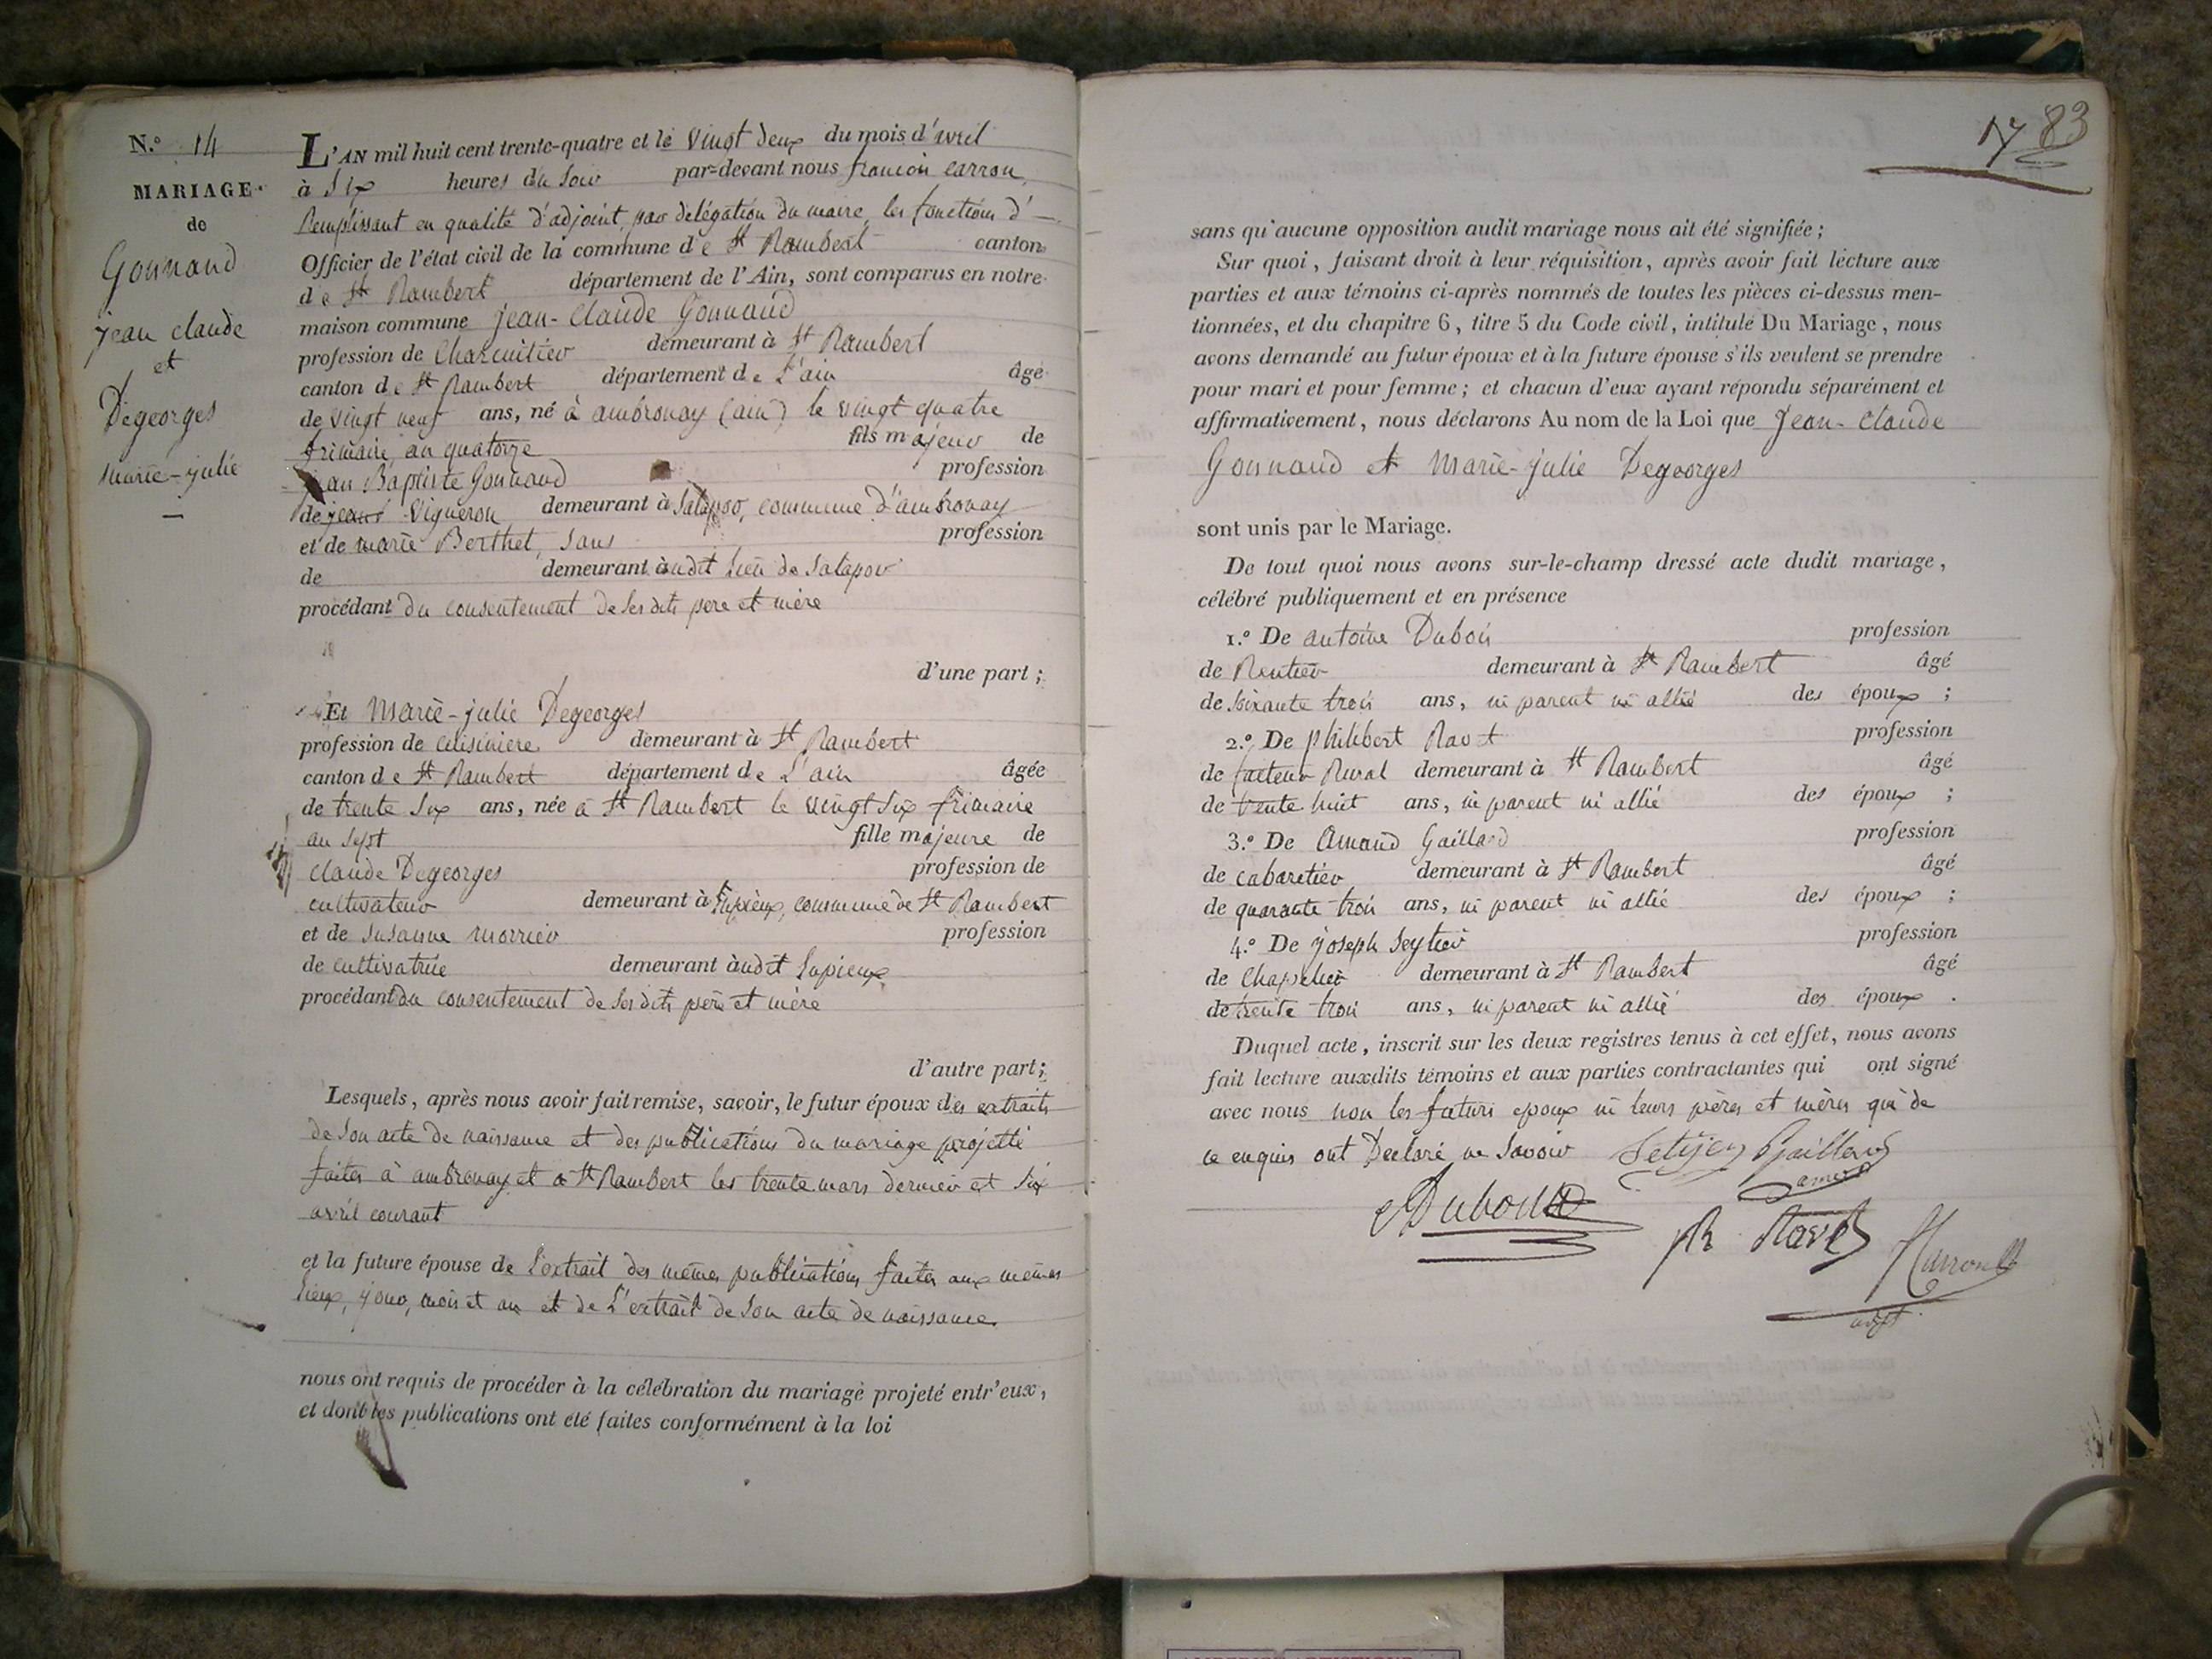 N.º 14
MARIAGE
de
Gonnand
jean claude
et
Degeorges
marie-julie
L'AN mil huit cent trente-quatre et le vingt deux du mois d'avril
à six heures du soir par-devant nous francois carron,
Remplissant en qualité d'adjoint, par délégation du maire, les fonctions d'
Officier de l'état civil de la commune de St Rambert canton
de St Rambert département de l'Ain, sont comparus en notre
maison commune jean-Claude Gonnand
profession de Charcuitier demeurant à St Rambert
canton de St Rambert département de L'ain âgé
de vingt neuf ans, né à ambronay (ain) le vingt quatre
frimaire an quatorze fils majeur de
jean Baptiste Gonnand profession
de jean vigneron demeurant à Salapor, commune d'ambronay
et de marie Berthet, sans profession
de demeurant audit lieu de Salapor
procédant du consentement de ses dits pere et mère
d'une part ;
Et Marie-julie Degeorges
profession de cuisiniere demeurant à St Rambert
canton de St Rambert département de L'ain âgée
de trente six ans, née à St Rambert le vingt six frimaire
an sept fille majeure de
claude Degeorges profession de
cultivateur demeurant à Supieux, commune de St Rambert
et de Susanne morrier profession
de cultivatrice demeurant audit Supieux
procédant du consentement de ses dits père et mère
d'autre part ;
Lesquels, après nous avoir fait remise, savoir, le futur époux des extraits
de son acte de naissance et des publications du mariage projetté
faites à ambronay et à St Rambert les trente mars dernier et six
avril courant
et la future épouse de l'extrait des mêmes publications faites aux mêmes
lieux, jour, mois et an et de L'extrait de son acte de naissance
nous ont requis de procéder à la célébration du mariage projeté entr'eux,
et dont les publications ont été faites conformément à la loi
83
sans qu'aucune opposition audit mariage nous ait été signifiée ;
Sur quoi, faisant droit à leur réquisition, après avoir fait lecture aux
parties et aux témoins ci-après nommés de toutes les pièces ci-dessus men-
tionnées, et du chapitre 6, titre 5 du Code civil, intitulé Du Mariage, nous
avons demandé au futur époux et à la future épouse s'ils veulent se prendre
pour mari et pour femme ; et chacun d'eux ayant répondu séparément et
affirmativement, nous déclarons Au nom de la Loi que Jean-Claude
Gonnand et Marie-julie Degeorges
sont unis par le Mariage.
De tout quoi nous avons sur-le-champ dressé acte dudit mariage,
célébré publiquement et en présence
1.º De antoine Dubois profession
de Rentier demeurant à St Rambert âgé
de soixante trois ans, ni parent ni allié des époux ;
2.º De philibert Ravet profession
de facteur Rural demeurant à St Rambert âgé
de trente huit ans, ni parent ni allié des époux ;
3.º De Amand Gaillard profession
de cabaretier demeurant à St Rambert âgé
de quarante trois ans, ni parent ni allié des époux ;
4.º De joseph Seytier profession
de Chapelier demeurant à St Rambert âgé
de trente trois ans, ni parent ni allié des époux .
Duquel acte, inscrit sur les deux registres tenus à cet effet, nous avons
fait lecture auxdits témoins et aux parties contractantes qui ont signé
avec nous non les futurs epoux ni leurs pères et mères qui de
ce enquis ont Declaré ne savoir Gaillard
Dubois Ravet
adjt